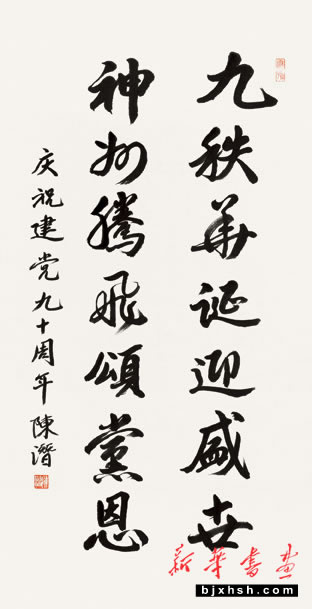 九秩華誕迎盛世
神州騰飛頌黨恩
庆祝建党九十周年陳潛
新華書畫
bjxhsh.com